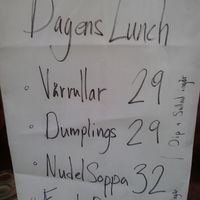 Dagens Lunch
Vårrullar 29
Dumplings 29
NudelSoppa 32
Dip + Sallad ingår